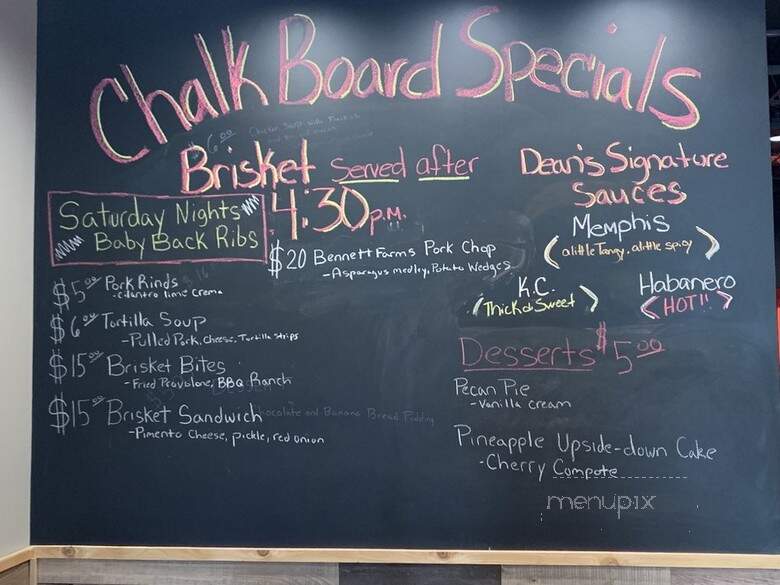 Chalk Board Specials
Brisket served after
4:30 P.M.
Saturday Nights
Baby Back Ribs
$20 Bennett Farms Pork Chop
-Asparagus medley, Potato Wedges
$5.00 Pork Rinds
-cilantro lime crema
$6.00 Tortilla Soup
-Pulled Pork, cheese, Tortilla strips
$15.00 Brisket Bites
-Fried Provolone, BBQ Ranch
$15.00 Brisket Sandwich
-Pimento Cheese, pickle, red onion
Chocolate and Banana Bread Pudding
Dean's Signature
Sauces
Memphis
(a little Tangy, a little spicy)
K.C.
(Thick & Sweet)
Habanero
<HOT!!>
Desserts $5.00
Pecan Pie
-Vanilla cream
Pineapple Upside-down Cake
-Cherry Compote
menupix